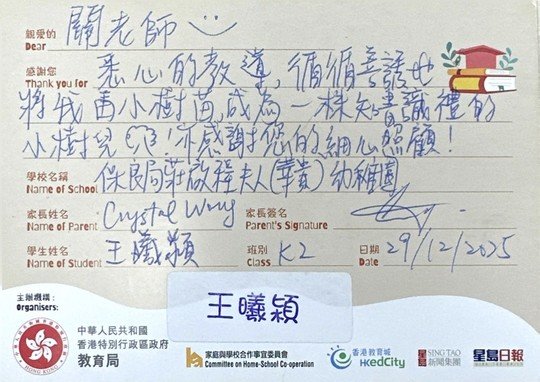 親愛的 Dear 關老師
感謝您 Thank you for 悉心的教導，循循善誘地
將我由小樹苗，成為一棵知書識禮的
小樹兒！亦感謝您的細心照顧！
學校名稱 Name of School 保良局莊啟程夫人(華貴)幼稚園
家長姓名 Name of Parent Crystal Wong 家長簽名 Parent's Signature
學生姓名 Name of Student 王曦穎 班別 Class K2 日期 Date 29/12/2025
主辦機構：
Organisers:
王曦穎
中華人民共和國
香港特別行政區政府
教育局
家庭與學校合作事宜委員會
Committee on Home-School Co-operation
香港教育城
HKedCity
星島新聞集團 SING TAO NEWS CORPORATION
星島日報